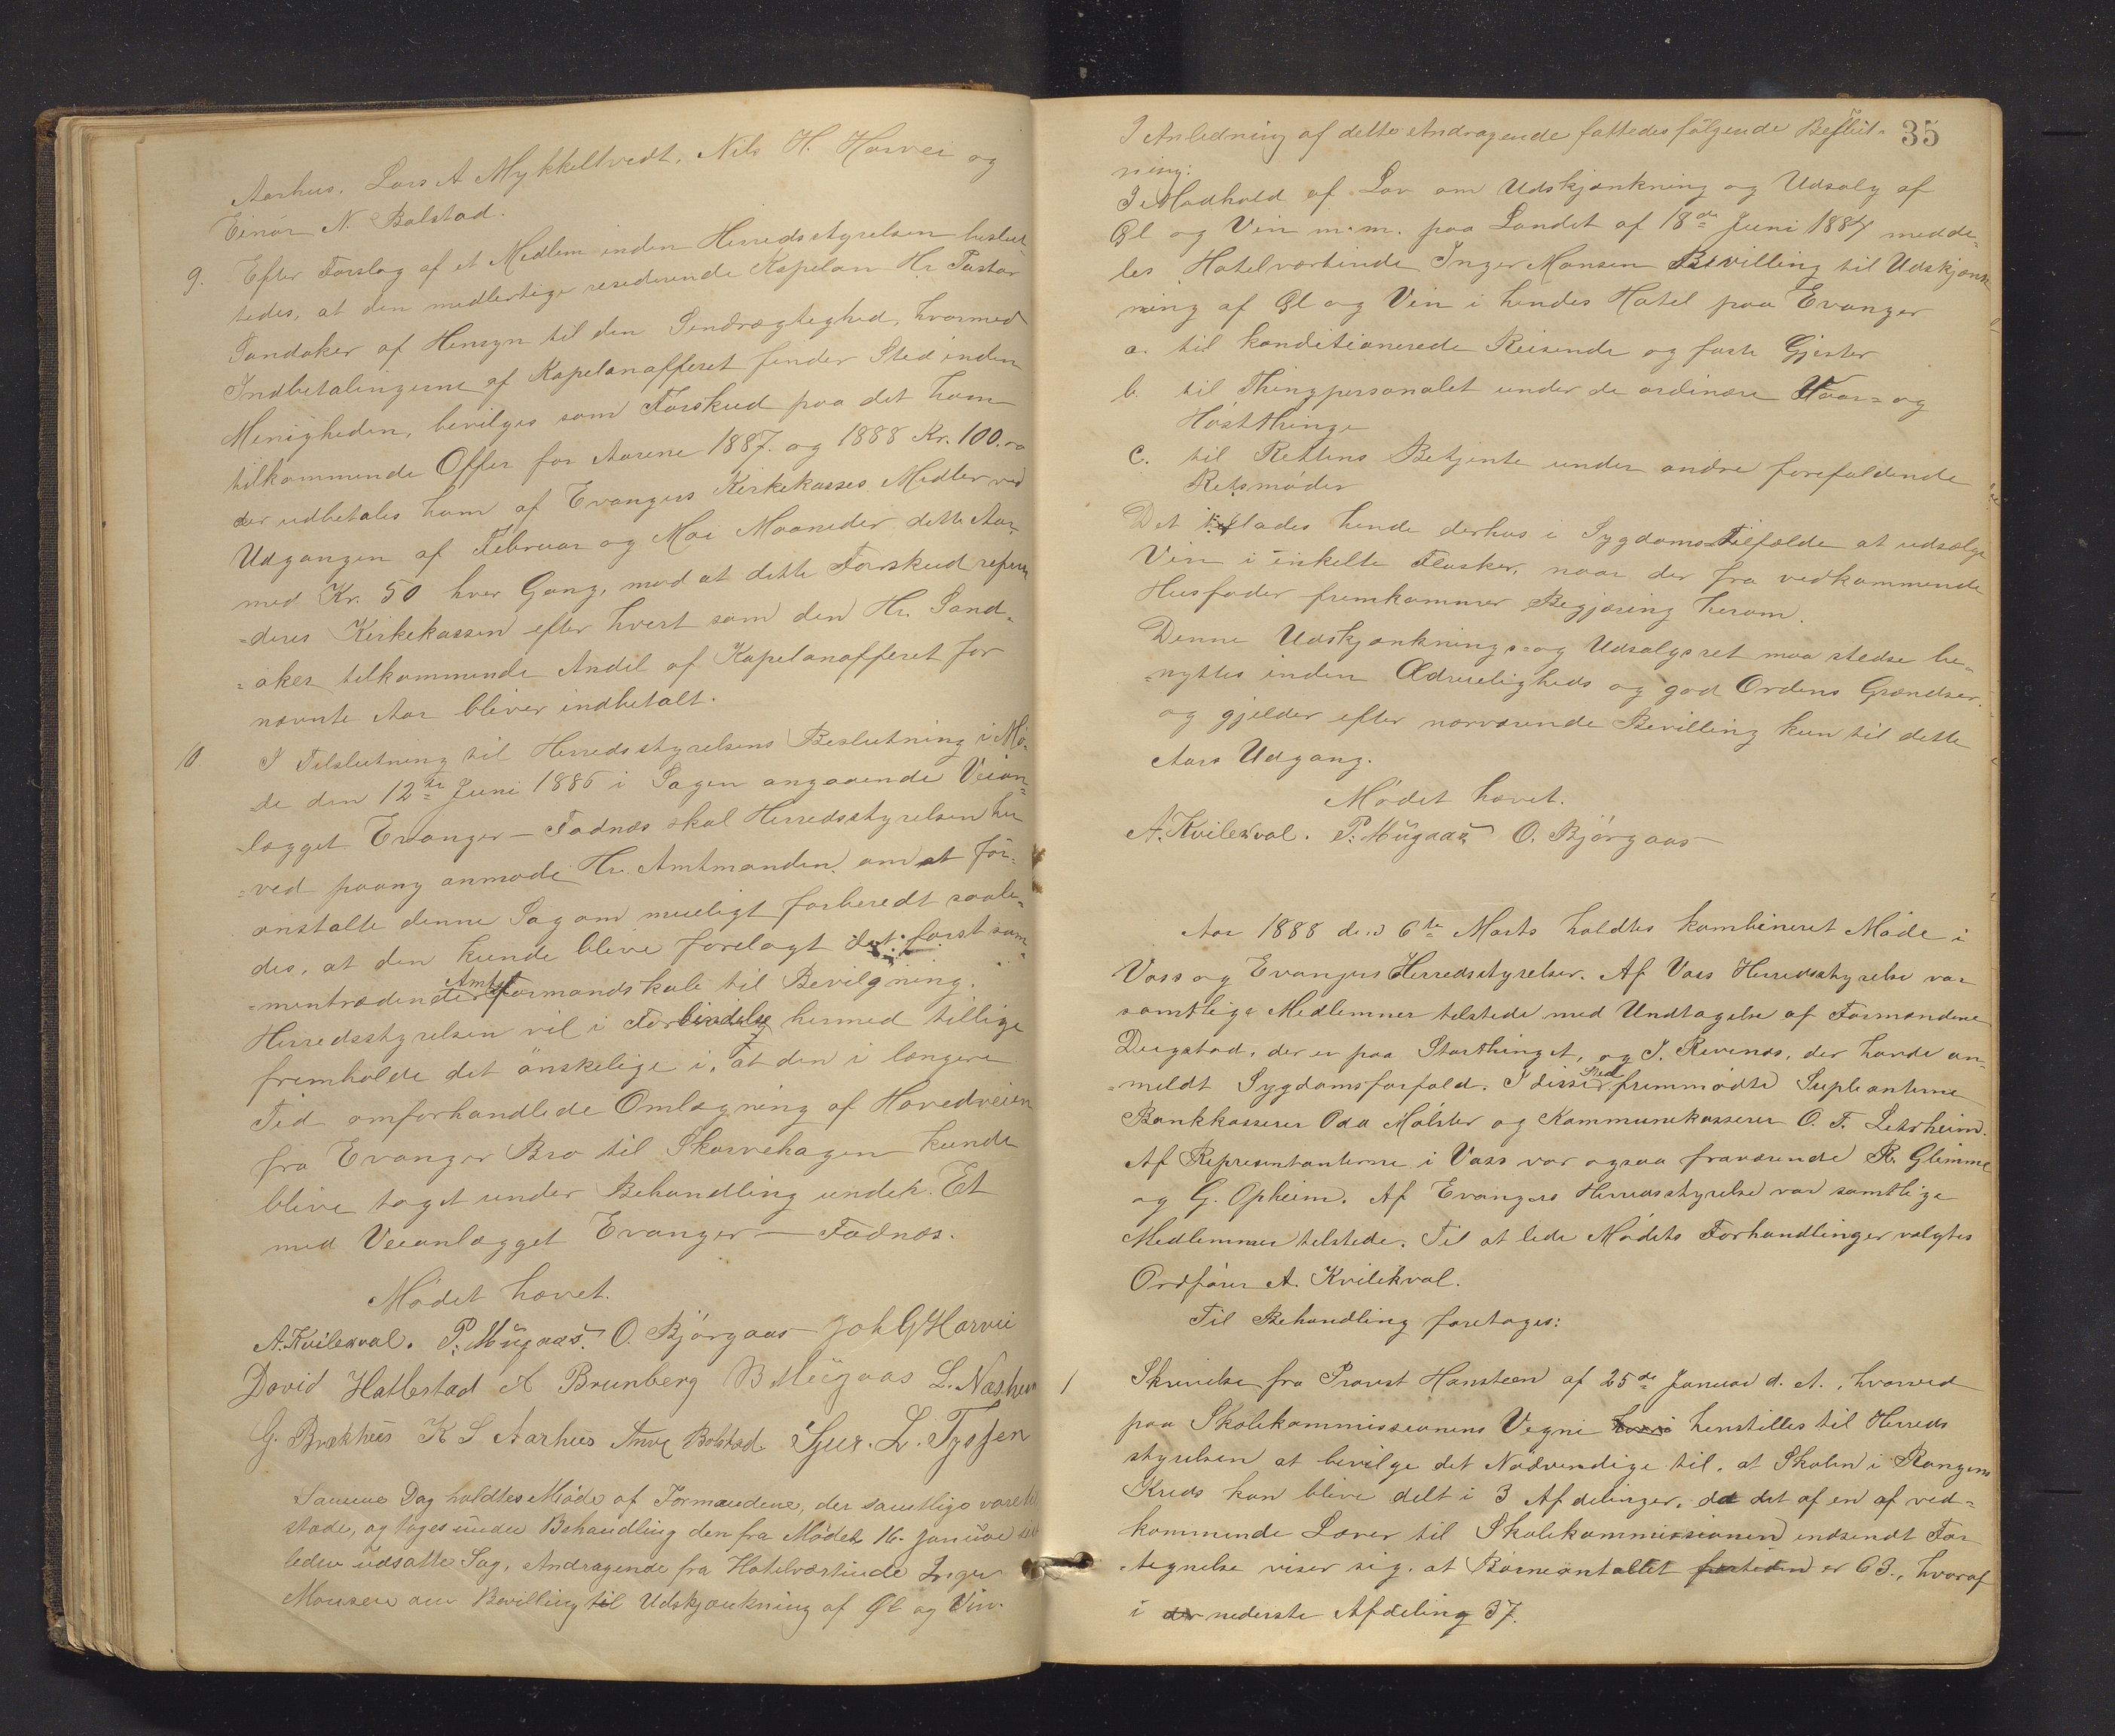 Aarhus, Lars A Mykkeltvedt, Nils H. Horvei og
Einar N. Bolstad.
9. Efter Forslag af et Medlem inden Herredsstyrelsen beslut-
tedes, at den midlertige residerende Kapelan Hr. Pastor
Sandaker af Hensyn til den Sendrægtighed, hvormed
Indbetalingerne af Kapelanofferet finder Sted inden
Menigheden, bevilges som Forskud paa det ham
tilkommende Offer for Aarene 1887. og 1888 Kr. 100.00
der udbetales ham af Evangers Kirkekasses Midler ved
Udgangen af Februar og Mai Maaneder dette Aar,
med Kr. 50 hver Gang, mod at dette Forskud refun
=deres Kirkekassen efter hvert som den Hr. Sand=
=aker tilkommende Andel af Kapelanofferet for
nævnte Aar bliver indbetalt.
10 I Tilslutning til Herredsstyrelsens Beslutning i Mö-
de den 12te Juni 1886 i Sagen angaaende Veian=
=lægget Evanger — Fadnæs skal Herredsstyrelsen her
=ved paany anmode Hr. Amtmanden om at for=
anstalte denne Sag om mueligt forberedt saale=
des, at den kunde blive forelagt det först sam=
=mentrædende Amtsformandskab til Bevilgning.
Herredsstyrelsen vil i Forbindelse hermed tillige
fremholde det önskelige i, at den i længere
Tid omforhandlede Omlægning af Hovedveien
fra Evanger Bro til Skorvehagen kunde
blive taget under Behandling under Et
med Veianlægget Evanger — Fadnæs.
Mödet hævet.
A. Kvilekval. P. Mügaas. O. Björgaas Joh G Horvei
David Hatlestad A Brunberg B Mügaas L. Næsheim
G. Brækhus K S Aarhus Anve Bolstad Sjur. L. Tyssen
Samme Dag holdtes Möde af Formændene, der samtlige vare til
stede, og toges under Behandling den fra Mödet 16. Januar sidst
leden udsatte Sag, Andragende fra Hotelværtinde Inger
Monsen om Bevilling til Udskjænkning af Öl og Vin.
35
I Anledning af dette Andragende fattedes fölgende Beslut-
ning:
I Medhold af Lov om Udskjænkning og Udsalg af
Öl og Vin m.m. paa Landet af 18de Juni 1884 medde-
les Hotelværtinde Inger Monsen Bevilling til Udskjænk
ning af Öl og Vin i hendes Hotel paa Evanger
a. til konditionerede Reisende og faste Gjester
b. til Thingpersonalet under de ordinære Vaar= og
Höstthinge
c. til Rettens Betjente under andre forefaldende
Retsmöder
Det tillades hende derhos i Sygdoms-Tilfælde at udsælge
Vin i enkelte Flasker, naar der fra vedkommende
Husfader fremkommer Begjæring herom.
Denne Udskjænknings= og Udsalgsret maa stedse be=
=nyttes inden Ædrueligheds og god Ordens Grændser.
og gjelder efter nærværende Bevilling kun til dette
Aars Udgang.
Mödet hævet.
A. Kvilekval. P. Mügaas O. Björgaas
Aar 1888 den 6te Marts holdtes kombineret Möde i
Voss og Evangers Herredsstyrelser. Af Voss Herredsstyrelse var
samtlige Medlemmer tilstede med Undtagelse af Formændene
Dugstad, der er paa Storthinget, og J. Revenæs, der havde an-
=meldt Sygdomsforfald. I disses Sted fremmödte Supleanterne
Bankkasserer Oda Mölster og Kommunekasserer O. T. Lekvheim.
Af Representanterne i Voss var ogsaa fraværende R. Glimme
og G. Opheim. Af Evangers Herredsstyrelse var samtlige
Medlemmer tilstede. Til at lede Mödets Forhandlinger valgtes
Ordförer A. Kvilekval.
Til Behandling foretoges:
1 Skrivelse fra Provst Hansteen af 25de Januar d. A., hvorved
paa Skolekommissionens Vegne henstilles til Herreds
styrelsen at bevilge det Nödvendige til, at Skolen i Rongens
Kreds kan blive delt i 3 Afdelinger, da det af en af ved=
kommende Lærer til Skolekommissionen indsendt For
tegnelse viser sig, at Börneantallet fortiden er 63, hvoraf
i der nederste Afdeling 37.